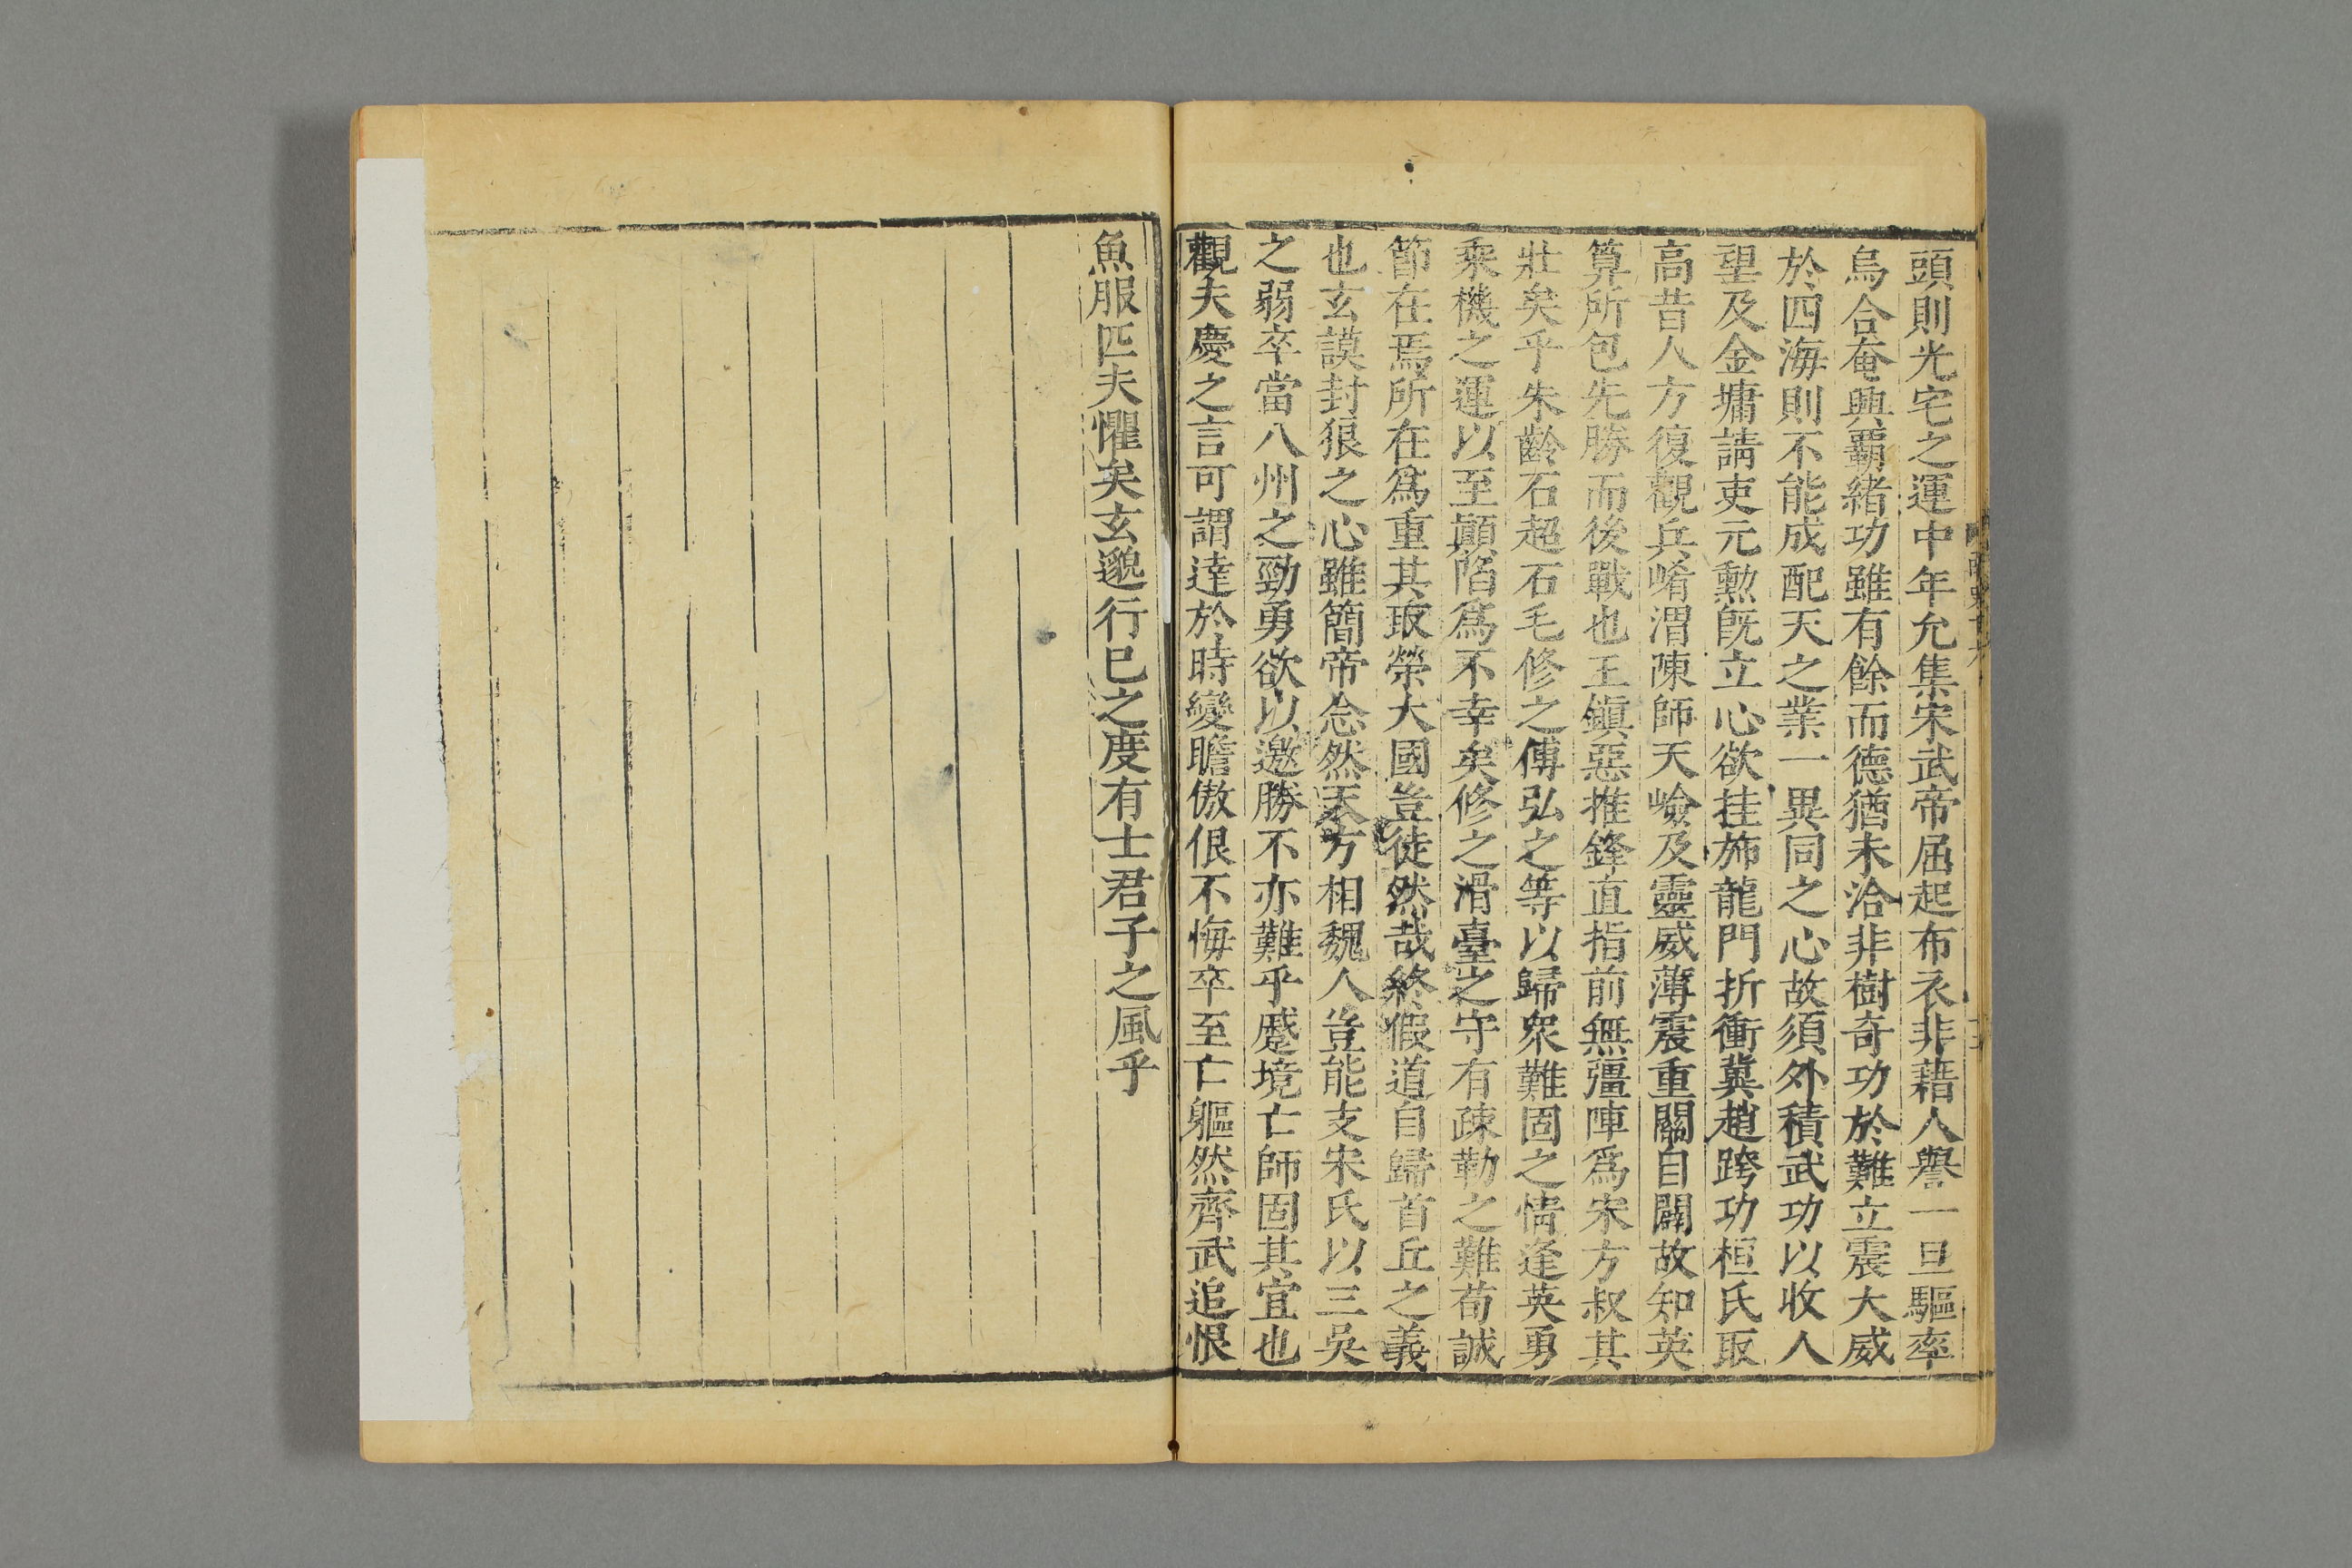 頭則光宅之運中年允集宋武帝屈起布衣非藉人譽一旦驅率
烏合奄興霸緒功雖有餘而德猶未洽非樹奇功於難立震大威
於四海則不能成配天之業一異同之心故須外積武功以收人
望及金墉請吏元勲旣立心欲挂斾龍門折衝冀趙跨功桓氏取
高昔人方復觀兵崤渭陳師天嶮及靈威薄震重關自闢故知英
算所包先勝而後戰也王鎮惡推鋒直指前無彊陣爲宋方叔其
壯矣乎朱齡石超石毛修之傅弘之等以歸衆難固之情逢英勇
乘機之運以至顚陷爲不幸矣修之滑臺之守有疎勒之難苟誠
節在焉所在爲重其取榮大國豈徒然哉終假道自歸首丘之義
也玄謨封狠之心雖簡帝念然天方相魏人豈能支宋氏以三吳
之弱卒當八州之勁勇欲以邀勝不亦難乎蹙境亡師固其宜也
觀夫慶之言可謂達於時變瞻傲佷不悔卒至亡軀然齊武追恨
魚服匹夫懼矣玄邈行巳之度有士君子之風乎